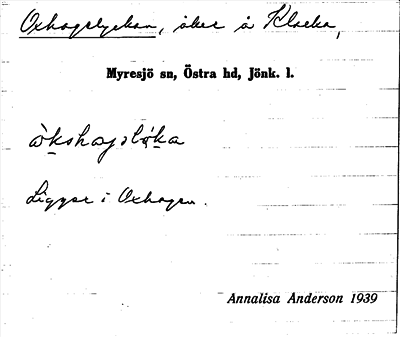 Oxhagslyckan, åker å Klacka,
Myresjö sn, Östra hd, Jönk. l.
Ligger i Oxhagen.
Annalisa Anderson 1939